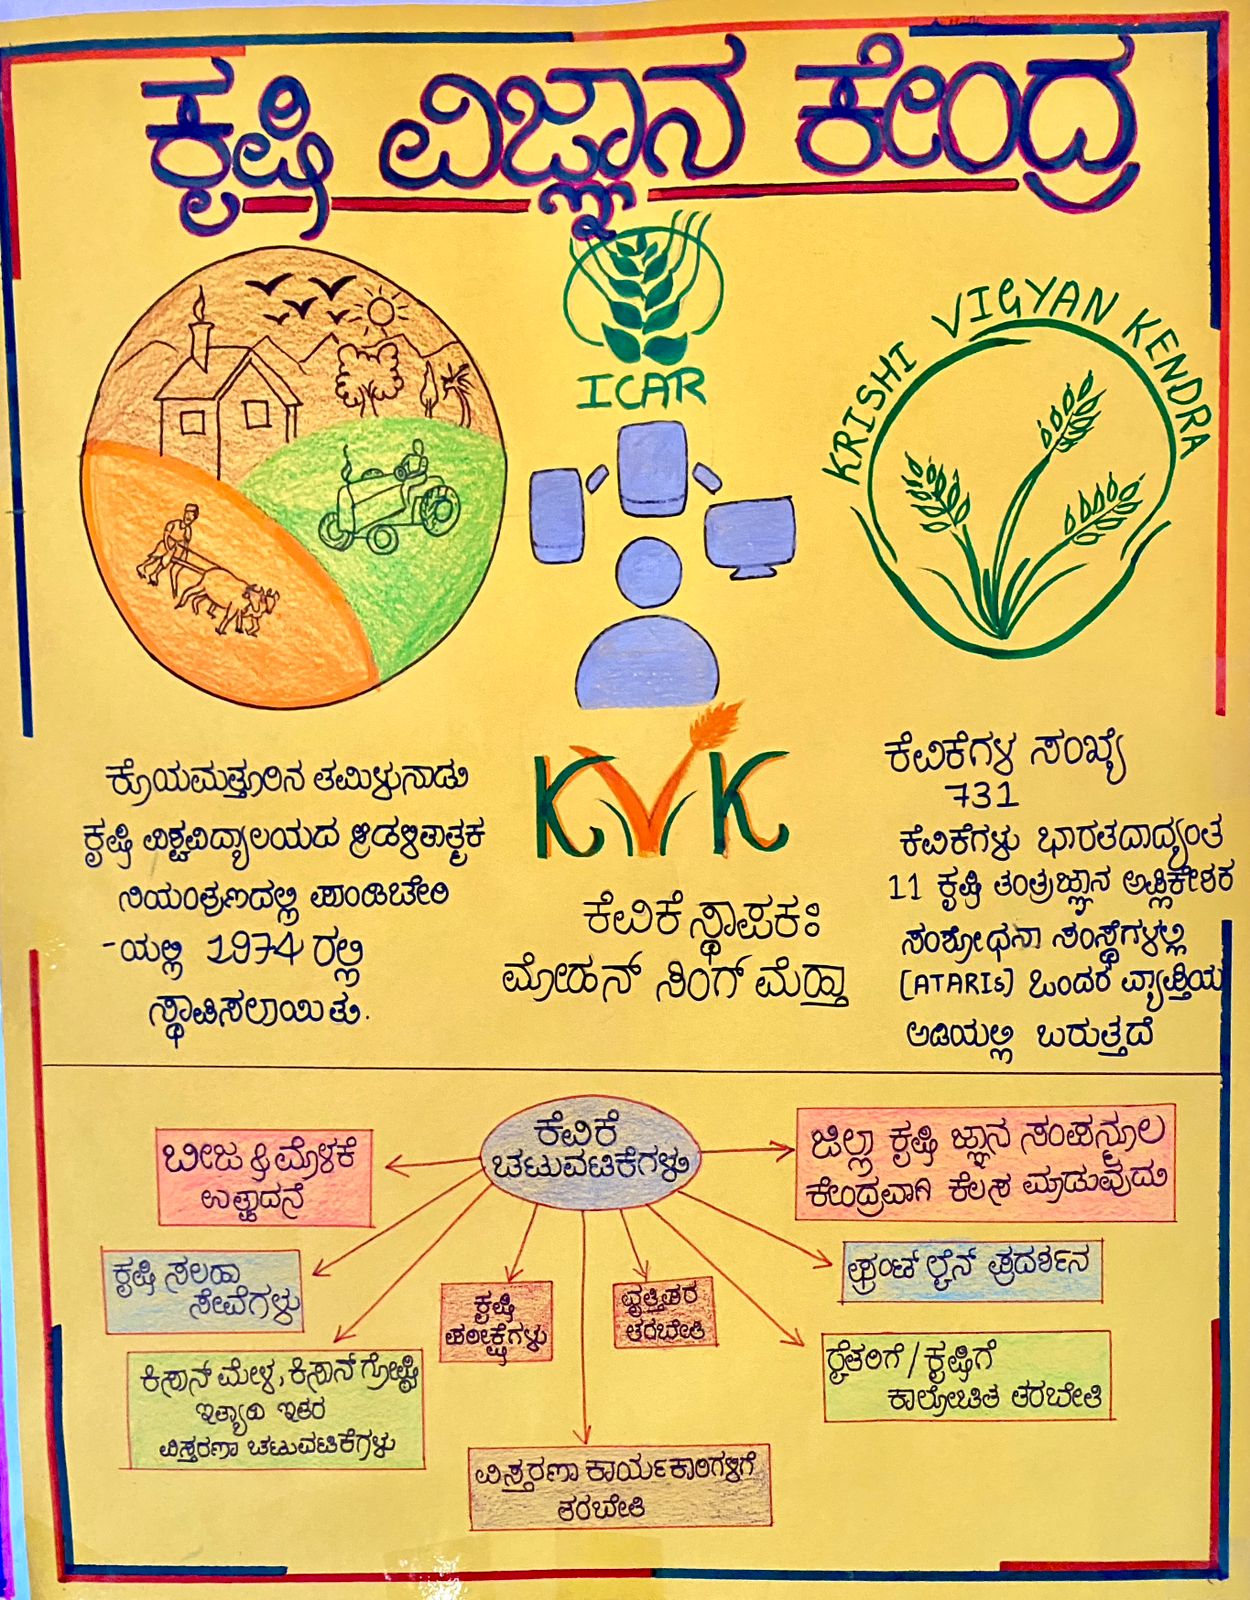 ಕೃಷಿ ವಿಜ್ಞಾನ ಕೇಂದ್ರ
ICAR
KRISHI VIGYAN KENDRA
ಕೊಯಮತ್ತೂರಿನ ತಮಿಳುನಾಡು
ಕೃಷಿ ವಿಶ್ವವಿದ್ಯಾಲಯದ ಆಡಳಿತಾತ್ಮಕ
ನಿಯಂತ್ರಣದಲ್ಲಿ ಪಾಂಡಿಚೇರಿ
-ಯಲ್ಲಿ 1974 ರಲ್ಲಿ
ಸ್ಥಾಪಿಸಲಾಯಿತು.
KVK
ಕೆವಿಕೆ ಸ್ಥಾಪಕಃ
ಮೋಹನ್ ಸಿಂಗ್ ಮೆಹ್ತಾ
ಕೆವಿಕೆಗಳ ಸಂಖ್ಯೆ
731
ಕೆವಿಕೆಗಳು ಭಾರತದಾದ್ಯಂತ
11 ಕೃಷಿ ತಂತ್ರಜ್ಞಾನ ಅಪ್ಲಿಕೇಶಕ
ಸಂಶೋಧನಾ ಸಂಸ್ಥೆಗಳಲ್ಲಿ
(ATARIs) ಒಂದರ ವ್ಯಾಪ್ತಿಯ
ಅಡಿಯಲ್ಲಿ ಬರುತ್ತದೆ
ಕೆವಿಕೆ
ಚಟುವಟಿಕೆಗಳು
ಬೀಜ & ಮೊಳಕೆ
ಉತ್ಪಾದನೆ
ಜಿಲ್ಲಾ ಕೃಷಿ ಜ್ಞಾನ ಸಂಪನ್ಮೂಲ
ಕೇಂದ್ರವಾಗಿ ಕೆಲಸ ಮಾಡುವುದು
ಕೃಷಿ ಸಲಹಾ
ಸೇವೆಗಳು
ಕೃಷಿ
ಪರೀಕ್ಷೆಗಳು
ವೃತ್ತಿಪರ
ತರಬೇತಿ
ಫ್ರಂಟ್ ಲೈನ್ ಪ್ರದರ್ಶನ
ಕಿಸಾನ್ ಮೇಳ, ಕಿಸಾನ್ ಗೋಷ್ಟಿ
ಇತ್ಯಾದಿ ಇತರ
ವಿಸ್ತರಣಾ ಚಟುವಟಿಕೆಗಳು
ರೈತರಿಗೆ/ಕೃಷಿಗೆ
ಕಾಲೋಚಿತ ತರಬೇತಿ
ವಿಸ್ತರಣಾ ಕಾರ್ಯಕಾರಿಗಳಿಗೆ
ತರಬೇತಿ